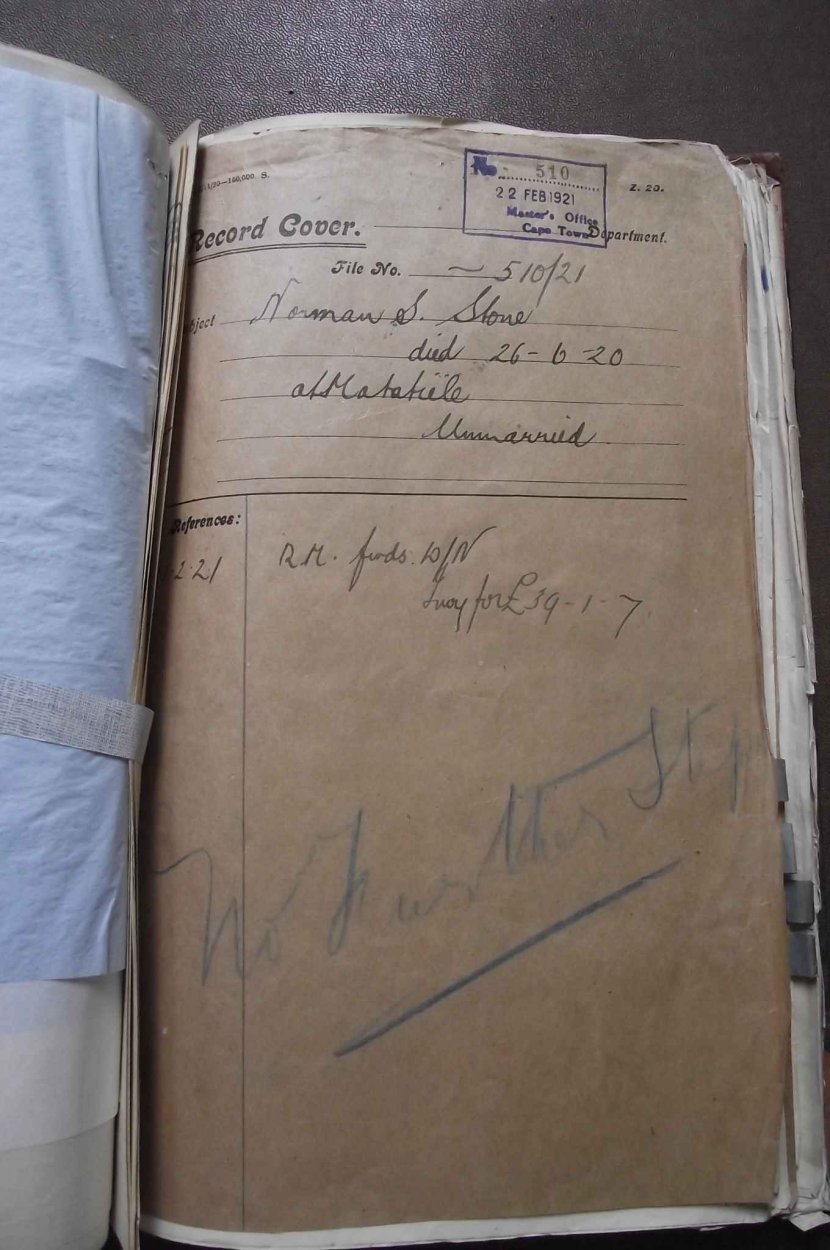 1/20—150,000. S.
No. 510
22 FEB 1921
Master's Office
Cape Town
Z. 20.
Record Cover.
Department.
File No. — 510/21
ject Norman S. Stone
died 26-6-20
at Matatiële
Unmarried
References:
2.21 R.M. fwds. D/N
Invy for £39-1-7
No Further Step